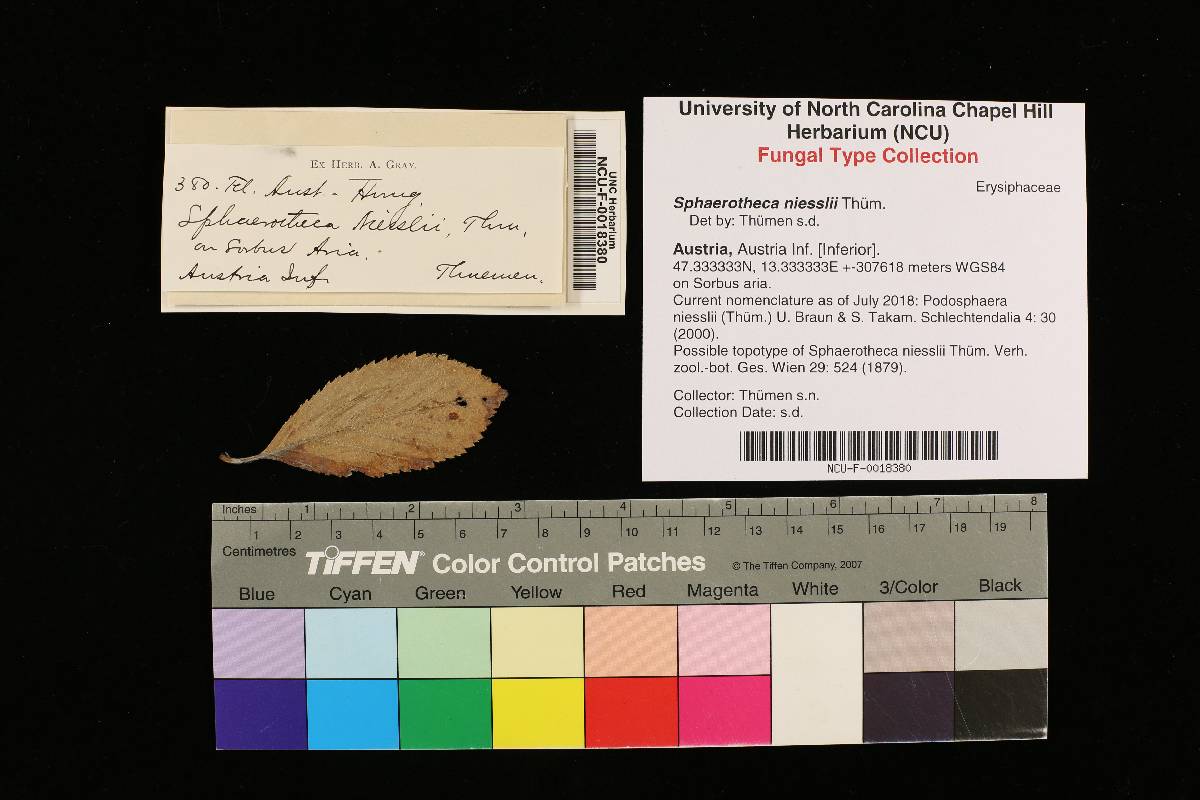 Ex Herb. A. Gray.
380. Fl. Aust - Hung.
Sphaerotheca Niesslii, Thm,
on Sorbus Aria.
Austria Inf.
Thuemen.
UNC Herbarium
NCU-F-0018380
University of North Carolina Chapel Hill
Herbarium (NCU)
Fungal Type Collection
Erysiphaceae
Sphaerotheca niesslii Thüm.
Det by: Thümen s.d.
Austria, Austria Inf. [Inferior].
47.333333N, 13.333333E +-307618 meters WGS84
on Sorbus aria.
Current nomenclature as of July 2018: Podosphaera
niesslii (Thüm.) U. Braun & S. Takam. Schlechtendalia 4: 30
(2000).
Possible topotype of Sphaerotheca niesslii Thüm. Verh.
zool.-bot. Ges. Wien 29: 524 (1879).
Collector: Thümen s.n.
Collection Date: s.d.
NCU-F-0018380
Inches 1 2 3 4 5 6 7 8
1 2 3 4 5 6 7 8 9 10 11 12 13 14 15 16 17 18 19
Centimetres
TIFFEN® Color Control Patches
© The Tiffen Company, 2007
Blue Cyan Green Yellow Red Magenta White 3/Color Black